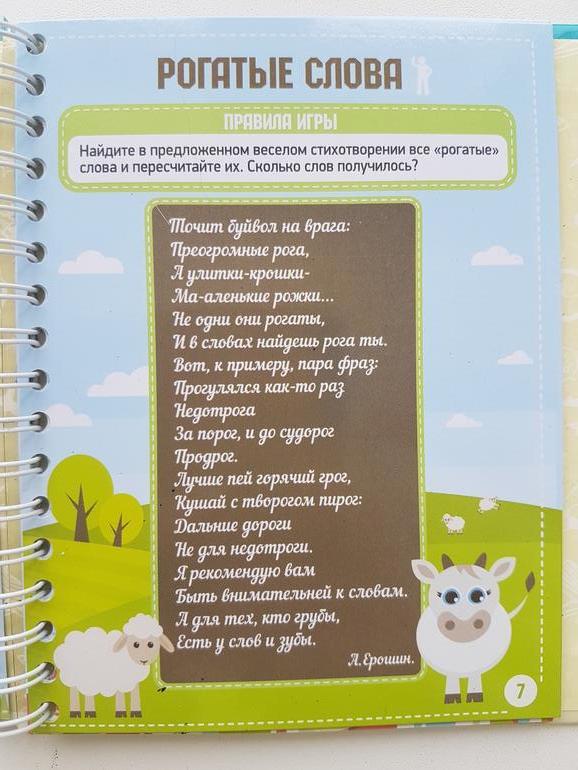 РОГАТЫЕ СЛОВА
ПРАВИЛА ИГРЫ
Найдите в предложенном веселом стихотворении все «рогатые»
слова и пересчитайте их. Сколько слов получилось?
Точит буйвол на врага:
Преогромные рога,
А улитки-крошки-
Ма-аленькие рожки...
Не одни они рогаты,
И в словах найдешь рога ты.
Вот, к примеру, пара фраз:
Прогулялся как-то раз
Недотрога
За порог, и до судорог
Продрог.
Лучше пей горячий грог,
Кушай с творогом пирог:
Дальние дороги
Не для недотроги.
Я рекомендую вам
Быть внимательней к словам.
А для тех, кто грубы,
Есть у слов и зубы.
Л.Ерошин.
7